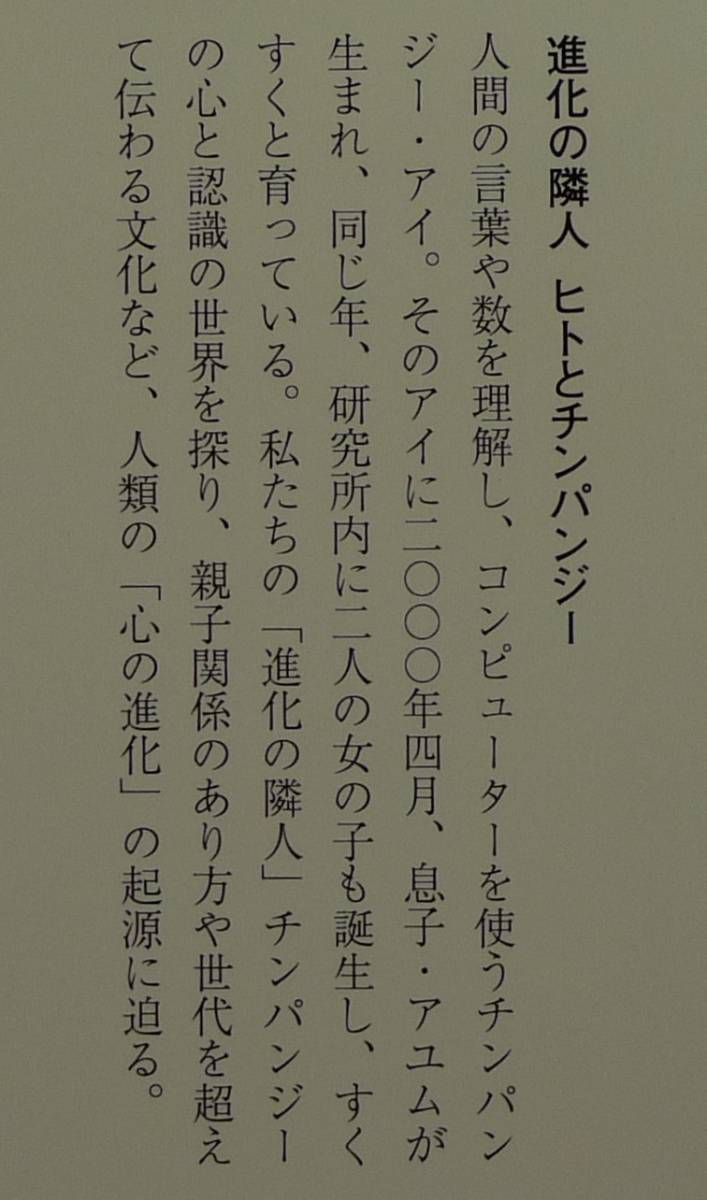 進化の隣人 ヒトとチンパンジー
人間の言葉や数を理解し、コンピューターを使うチンパン
ジー・アイ。そのアイに二〇〇〇年四月、息子・アユムが
生まれ、同じ年、研究所内に二人の女の子も誕生し、すく
すくと育っている。私たちの「進化の隣人」チンパンジー
の心と認識の世界を探り、親子関係のあり方や世代を超え
て伝わる文化など、人類の「心の進化」の起源に迫る。